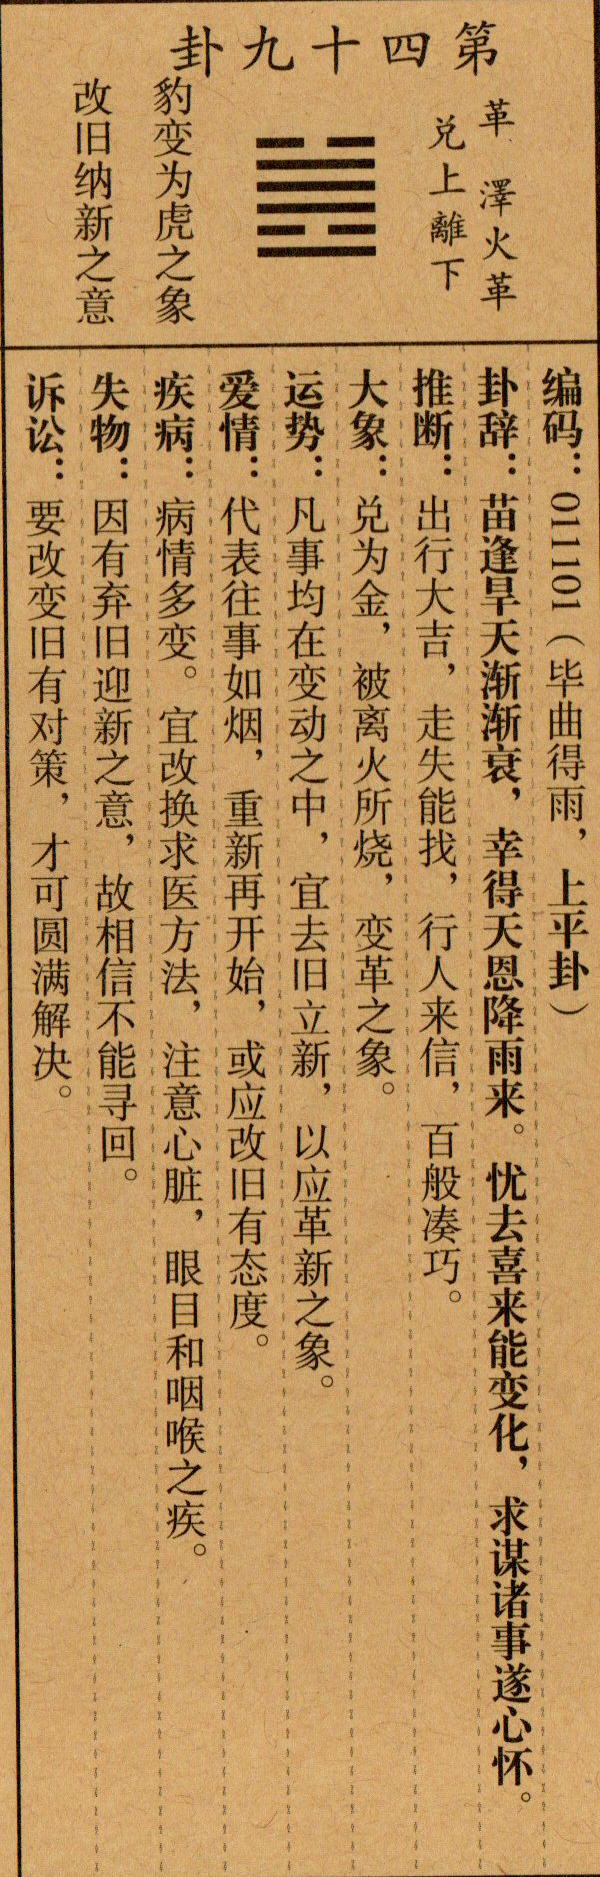 第四十九卦
革 澤火革
兑上離下
豹变为虎之象
改旧纳新之意
编码：011101（毕曲得雨，上平卦）
卦辞：苗逢旱天渐渐衰，幸得天恩降雨来。忧去喜来能变化，求谋诸事遂心怀。
推断：出行大吉，走失能找，行人来信，百般凑巧。
大象：兑为金，被离火所烧，变革之象。
运势：凡事均在变动之中，宜去旧立新，以应革新之象。
爱情：代表往事如烟，重新再开始，或应改旧有态度。
疾病：病情多变。宜改换求医方法，注意心脏，眼目和咽喉之疾。
失物：因有弃旧迎新之意，故相信不能寻回。
诉讼：要改变旧有对策，才可圆满解决。